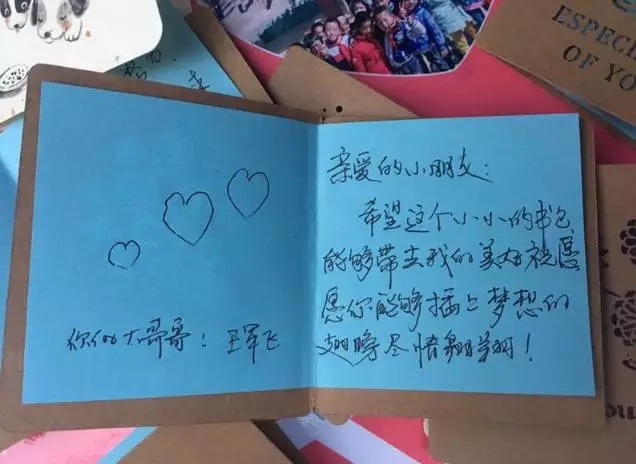 ESPECI
OF YO
你的大哥哥：王军飞
亲爱的小朋友：
希望这个小小的书包
能够带去我的美好祝愿
愿你能够插上梦想的
翅膀尽情翱翔！